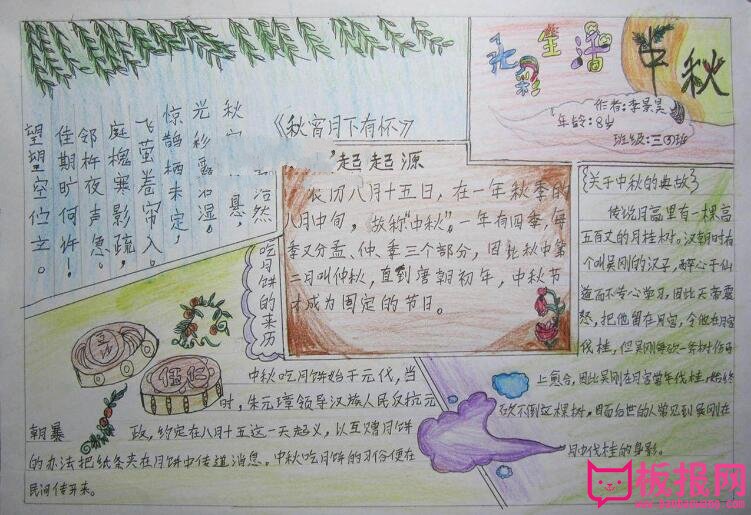 中秋
作者:李景昊
年龄:8岁
班级:三③班
《秋宵月下有怀》
浩然
秋 悬,
光彩露沾湿。
惊鹊栖未定,
飞萤卷帘入。
庭槐寒影疏,
邻杵夜声急。
佳期旷何许!
望望空伫立。
起起源
农历八月十五日,在一年秋季的
八月中旬,故称"中秋"。一年有四季,每
季又分孟、仲、季三个部分,因此秋中第
二月叫仲秋,直到唐朝初年,中秋节
才成为固定的节日。
关于中秋的典故
传说月宫里有一棵高
五百丈的月桂树。汉朝时有
个叫吴刚的汉子,醉心于仙
道而不专心学习,因此天帝震
怒,把他留在月宫,令他在月宫
伐桂,但吴刚每砍一斧树伤
上愈合,因此吴刚在月宫常年伐桂,始终
砍不倒这棵树,因而后世的人常见到吴刚在
月中伐桂的身影。
吃月饼的来历
五仁
中秋吃月饼始于元代,当
时,朱元璋领导汉族人民反抗元
朝暴政,约定在八月十五这一天起义,以互赠月饼
的办法把纸条夹在月饼中传递消息。中秋吃月饼的习俗便在
民间传开来。
板报网